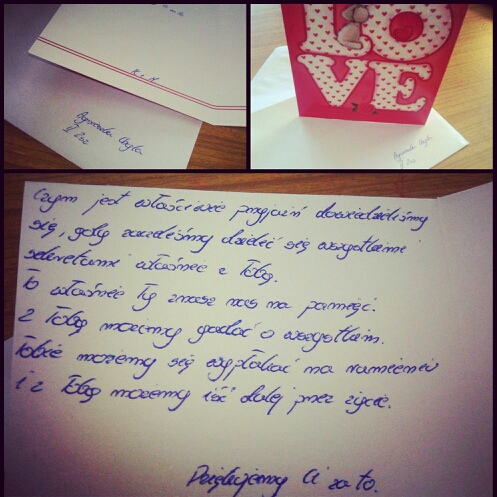 K + N
II Zaz
LOVE
II Zaz
Czym jest właściwie przyjaźń dowiedzieliśmy
się, gdy zaczęliśmy dzielić się wszystkimi
sekretami właśnie z Tobą.
To właśnie Ty znasz nas na pamięć.
Z Tobą możemy gadać o wszystkim.
Tobie możemy się wypłakać na ramieniu
i z Tobą możemy iść dalej przez życie.
Dziękujemy Ci za to.